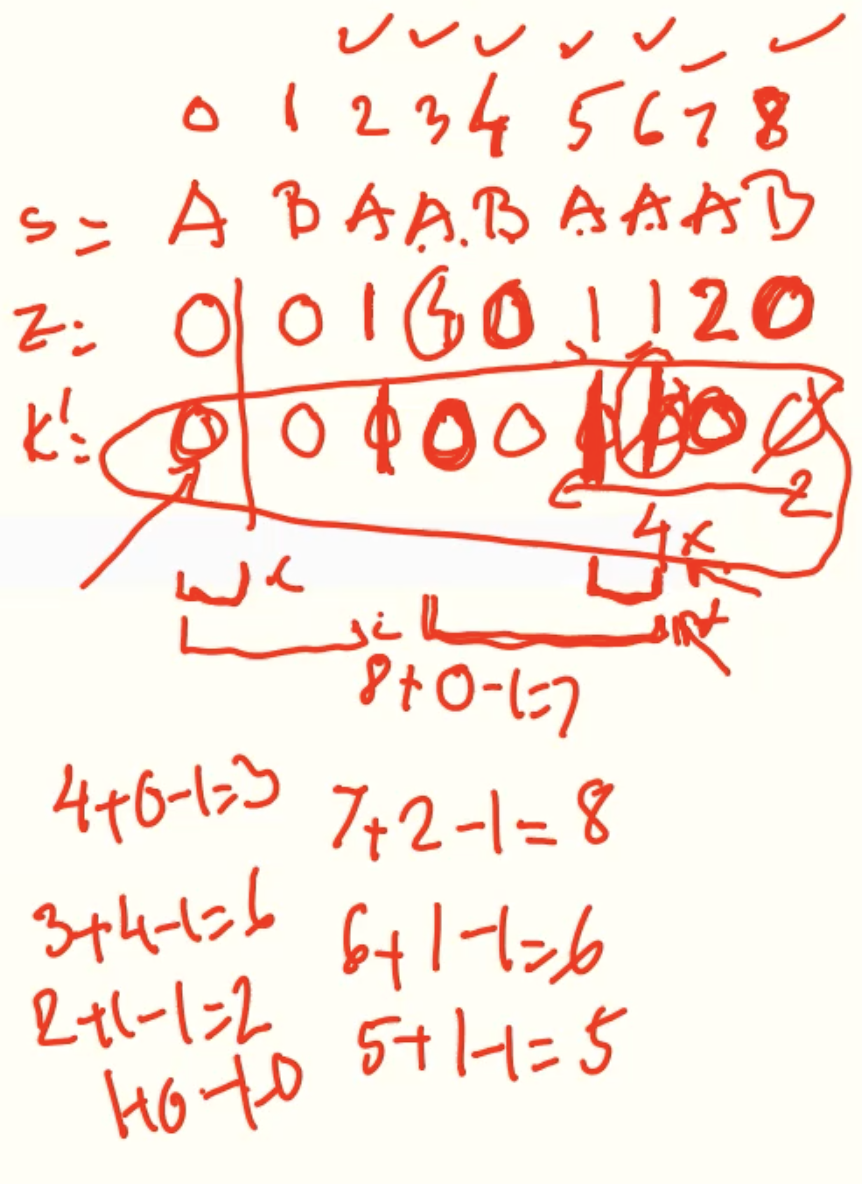 0 1 2 3 4 5 6 7 8
S = A B A A B A A A B
Z: 0 0 1 4 0 1 1 2 0
K': 0 0 0 0 0 2
4 x
i
8+0-1=7
4+0-1=3 7+2-1=8
3+4-1=6 6+1-1=6
2+1-1=2 5+1-1=5
1+0-1=0